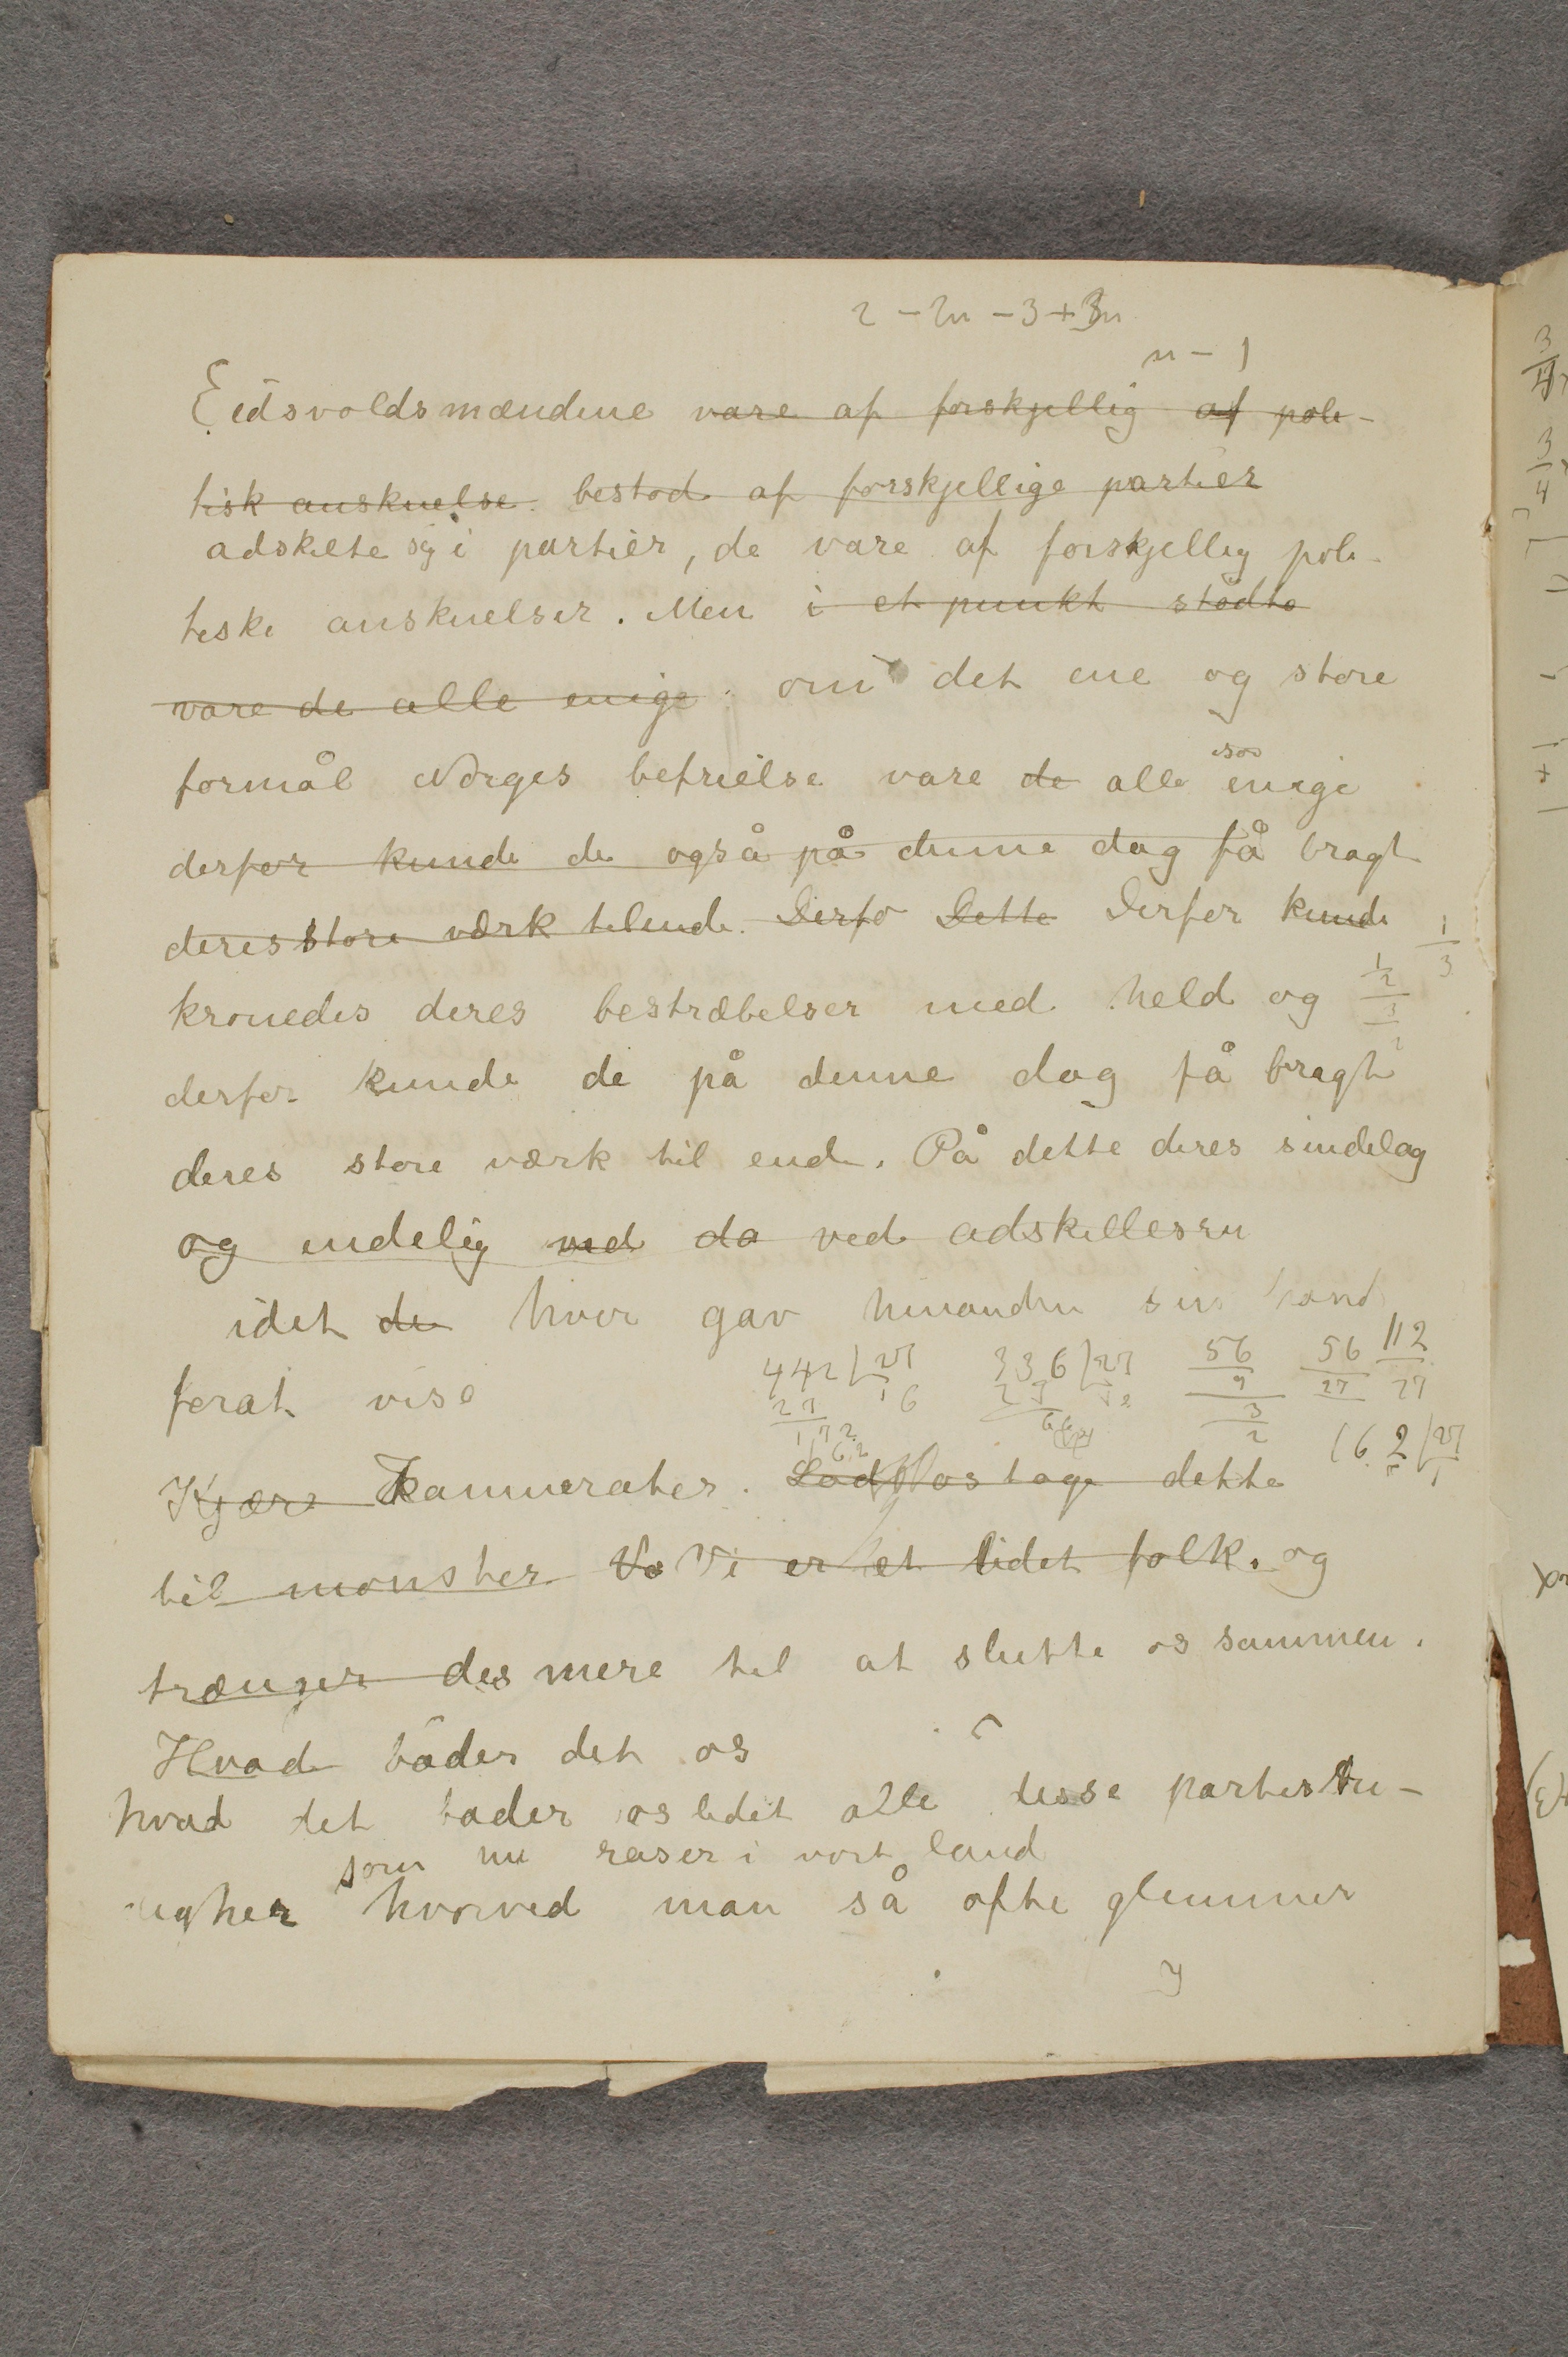 2 - 2n - 3 + 3n
n - 1
Eidsvoldsmændene vare af forskjellig af poli-
tisk anskuelse. bestod af forskjellige partier
adskilte sig i partier, de vare af forskjellig poli-
tiske anskuelser. Men i et punkt stødte
vare de alle enige. om det ene og store
formål Norges befrielse vare de alle enige
derfor kunde de også på denne dag få bragt
deres store værk tilende. Derfo Dette Derfor kunde
1/3
kronedes deres bestræbelser med held og
derfor kunde de på denne dag få bragt
deres store værk til ende. På dette deres sindelag
og endelig ved da ved adskillesen
idet de hver gav hinanden sin hånd
forat vise
442 | 27 336 | 27 56 56 112
27 16 27 9 27 27
172 3
162 2
162 | 27
Kjære Kammerater. Lad os tage dette
til mønster Vo Vi er et lidet folk. og
trænger des mere til at slutte os sammen.
Hvad båder det os
hvad det båder os lidet alle disse partistri-
som nu raser i vort land
igher hvorved man så ofte glemmer